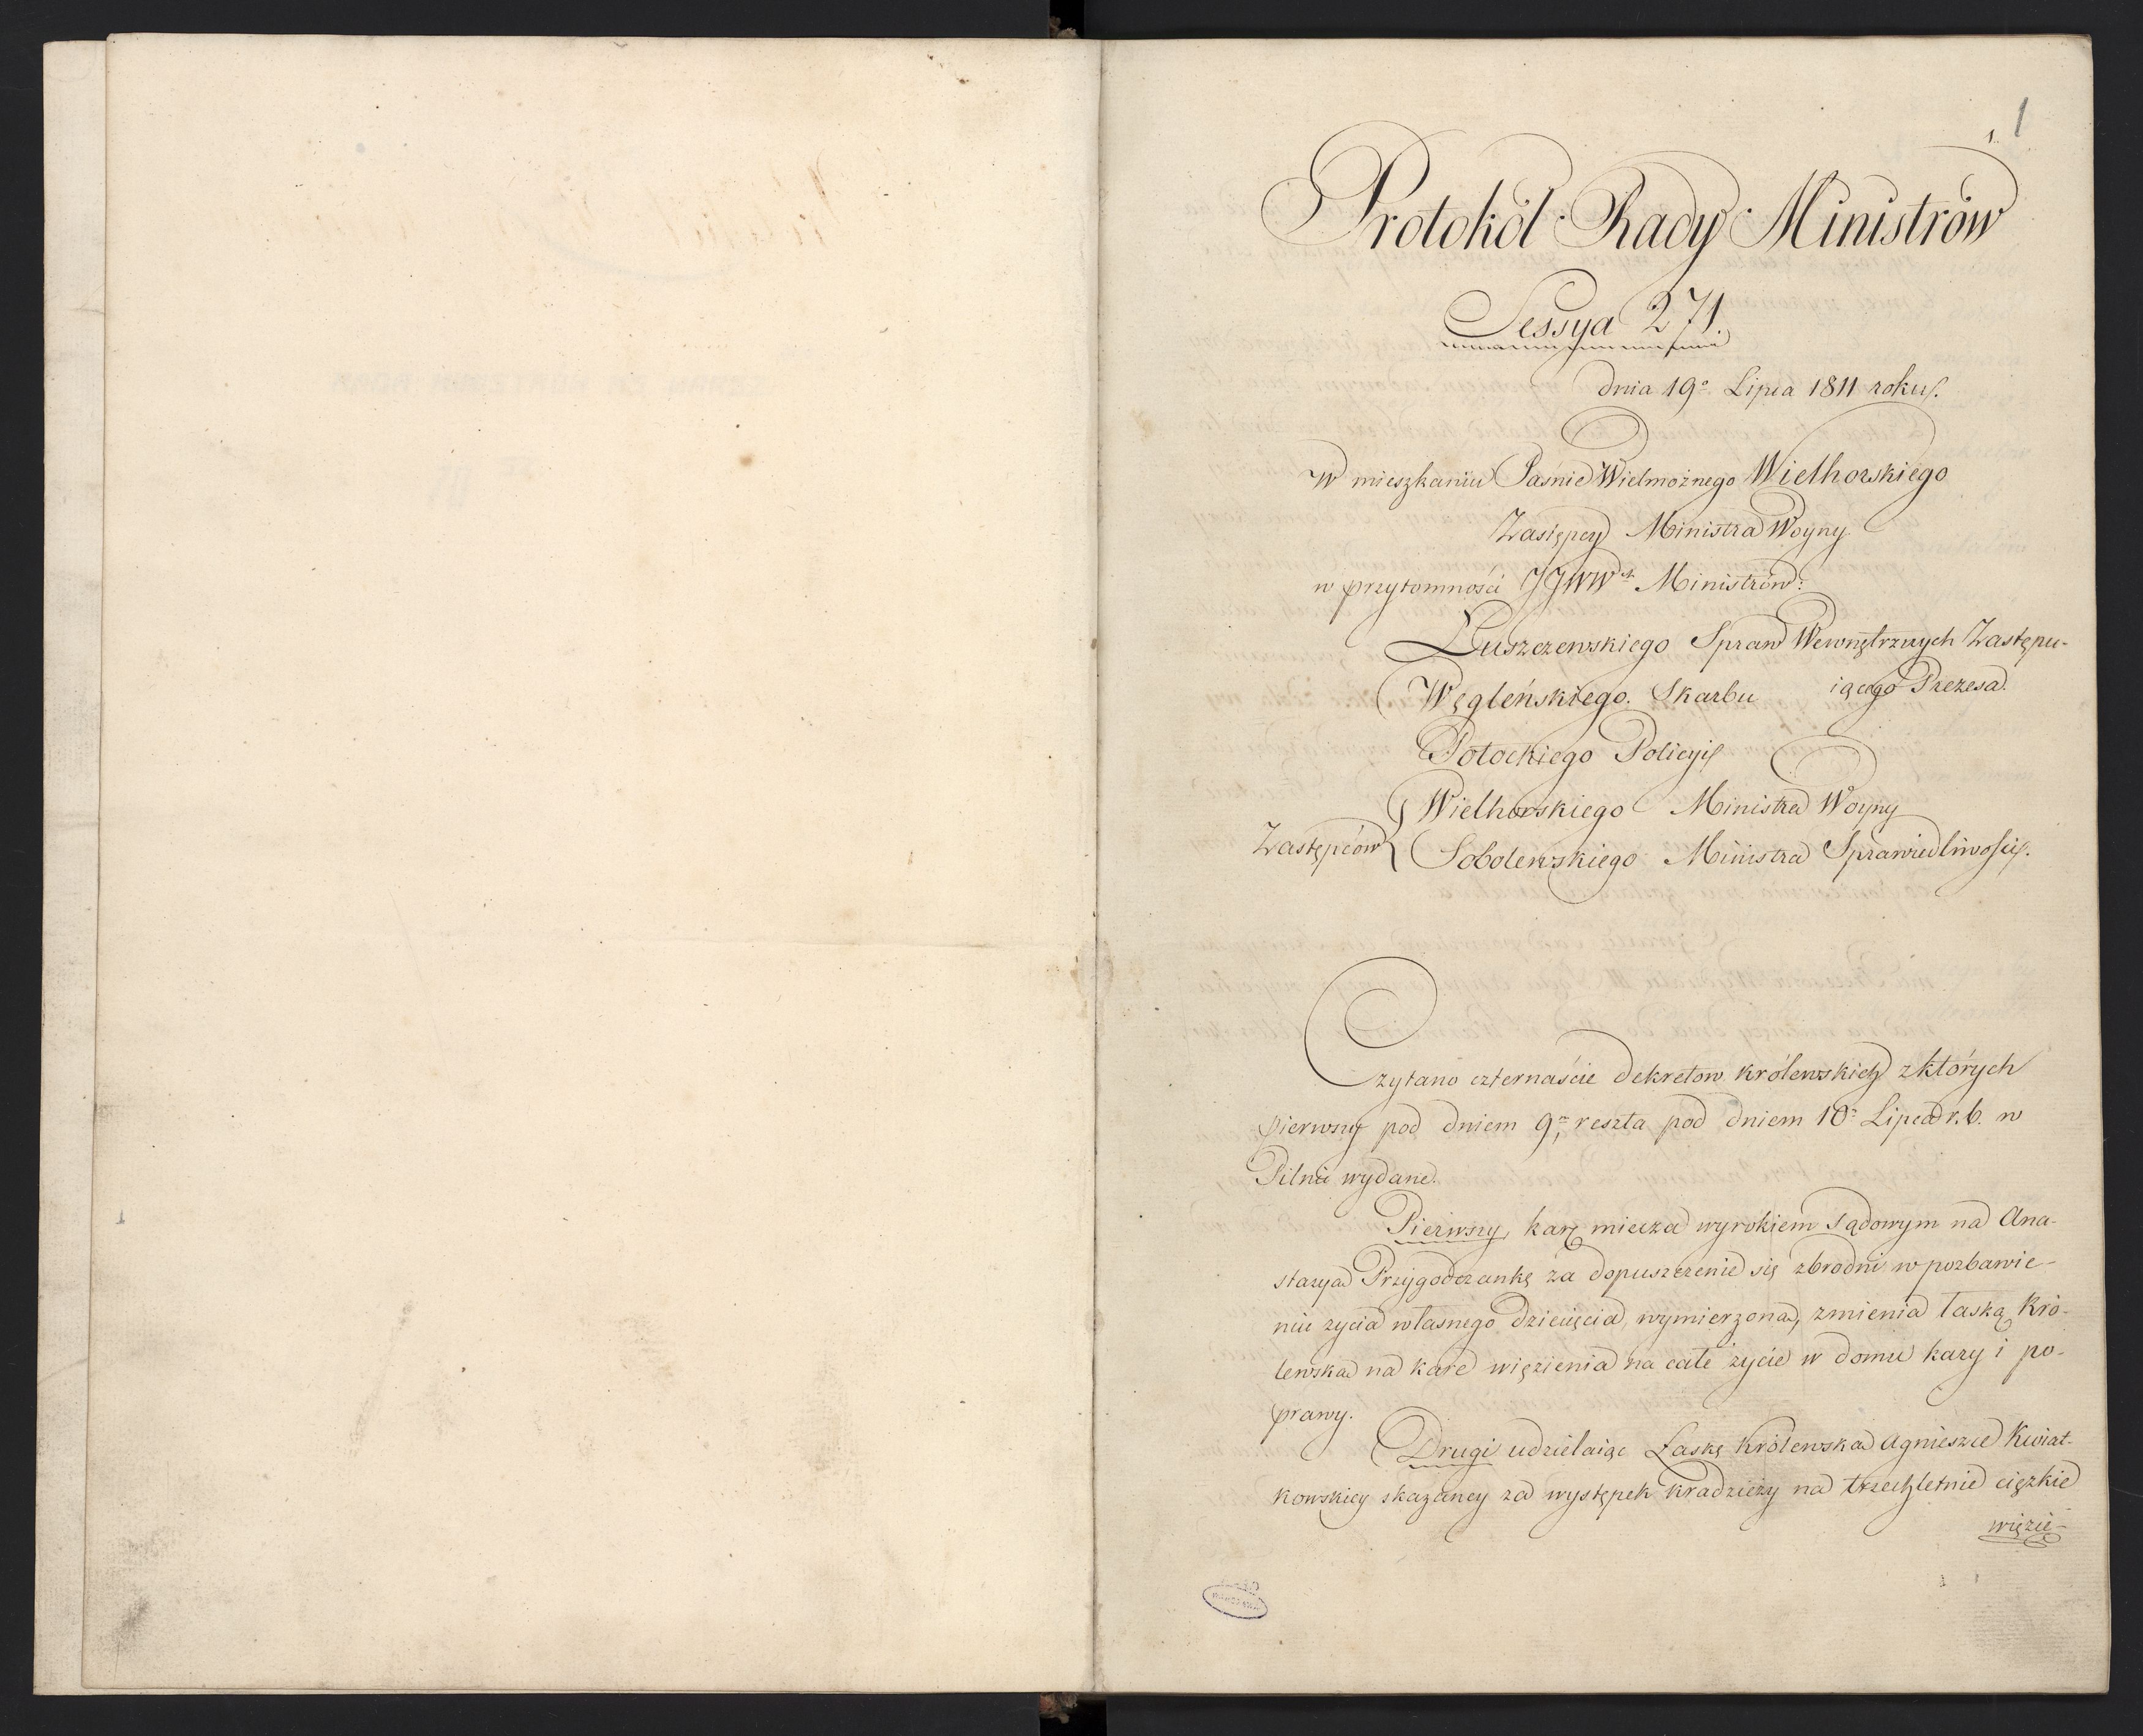 1
1.
Protokół Rady Ministrów
Sessya 271.
dnia 19º Lipca 1811 roku.
W mieszkaniu Jaśnie Wielmożnego Wielhorskiego
Zastępcy Ministra Woyny
w przytomności JJWWch Ministrów:
Łuszczewskiego Spraw Wewnętrznych Zastępu-
iącego Prezesa.
Węgleńskiego. Skarbu
Potockiego Policyi
Wielhorskiego Ministra Woyny
Zastępców
Sobolewskiego Ministra Sprawiedliwości.
Czytano czternaście dekretow królewskich z których
pierwszy pod dniem 9m, reszta pod dniem 10º Lipca r. b. w
Pilnic wydane.
Pierwszy, karę miecza wyrokiem sądowym na Ana-
stazyą Przygodzankę za dopuszczenie się zbrodni w pozbawie-
niu zycia własnego dziecięcia, wymierzoną, zmienia łaską Kró-
lewską na karę więzienia na całe życie w domu kary i po-
prawy.
Drugi udzielaiąc Łaskę Królewską Agnieszce Kwiat-
kowskiey skazaney za występek kradzieży na trzechletnie cięzkie
więzie-